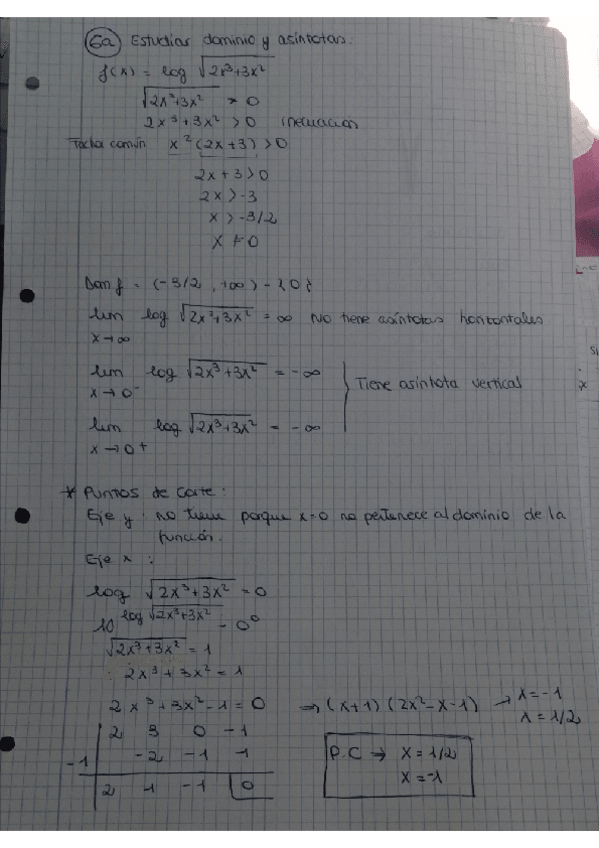 6a Estudias dominio y asíntotas.
f(x) = log √(2x³+3x²)
√(2x³+3x²) > 0
2x³+3x² > 0 inecuacion
Factor común x²(2x+3) > 0
2x+3 > 0
2x > -3
x > -3/2
x ≠ 0
Dom f = (-3/2, +∞) - {0}
lim log √(2x³+3x²) = ∞ No tiene asíntotas horizontales
x→∞
lim log √(2x³+3x²) = -∞
x→0⁻
Tiene asíntota vertical
lim log √(2x³+3x²) = -∞
x→0⁺
* Puntos de corte:
Eje y: no tiene porque x=0 no pertenece al dominio de la
función.
Eje x:
log √(2x³+3x²) = 0
10^(log √(2x³+3x²)) = 0⁰
√(2x³+3x²) = 1
2x³+3x² = 1
2x³+3x²-1=0 → (x+1)(2x²-x-1) → x=-1
x=1/2
2 3 0 -1
-1 -2 -1 1
2 1 -1 0
P.C → x=1/2
x=-1